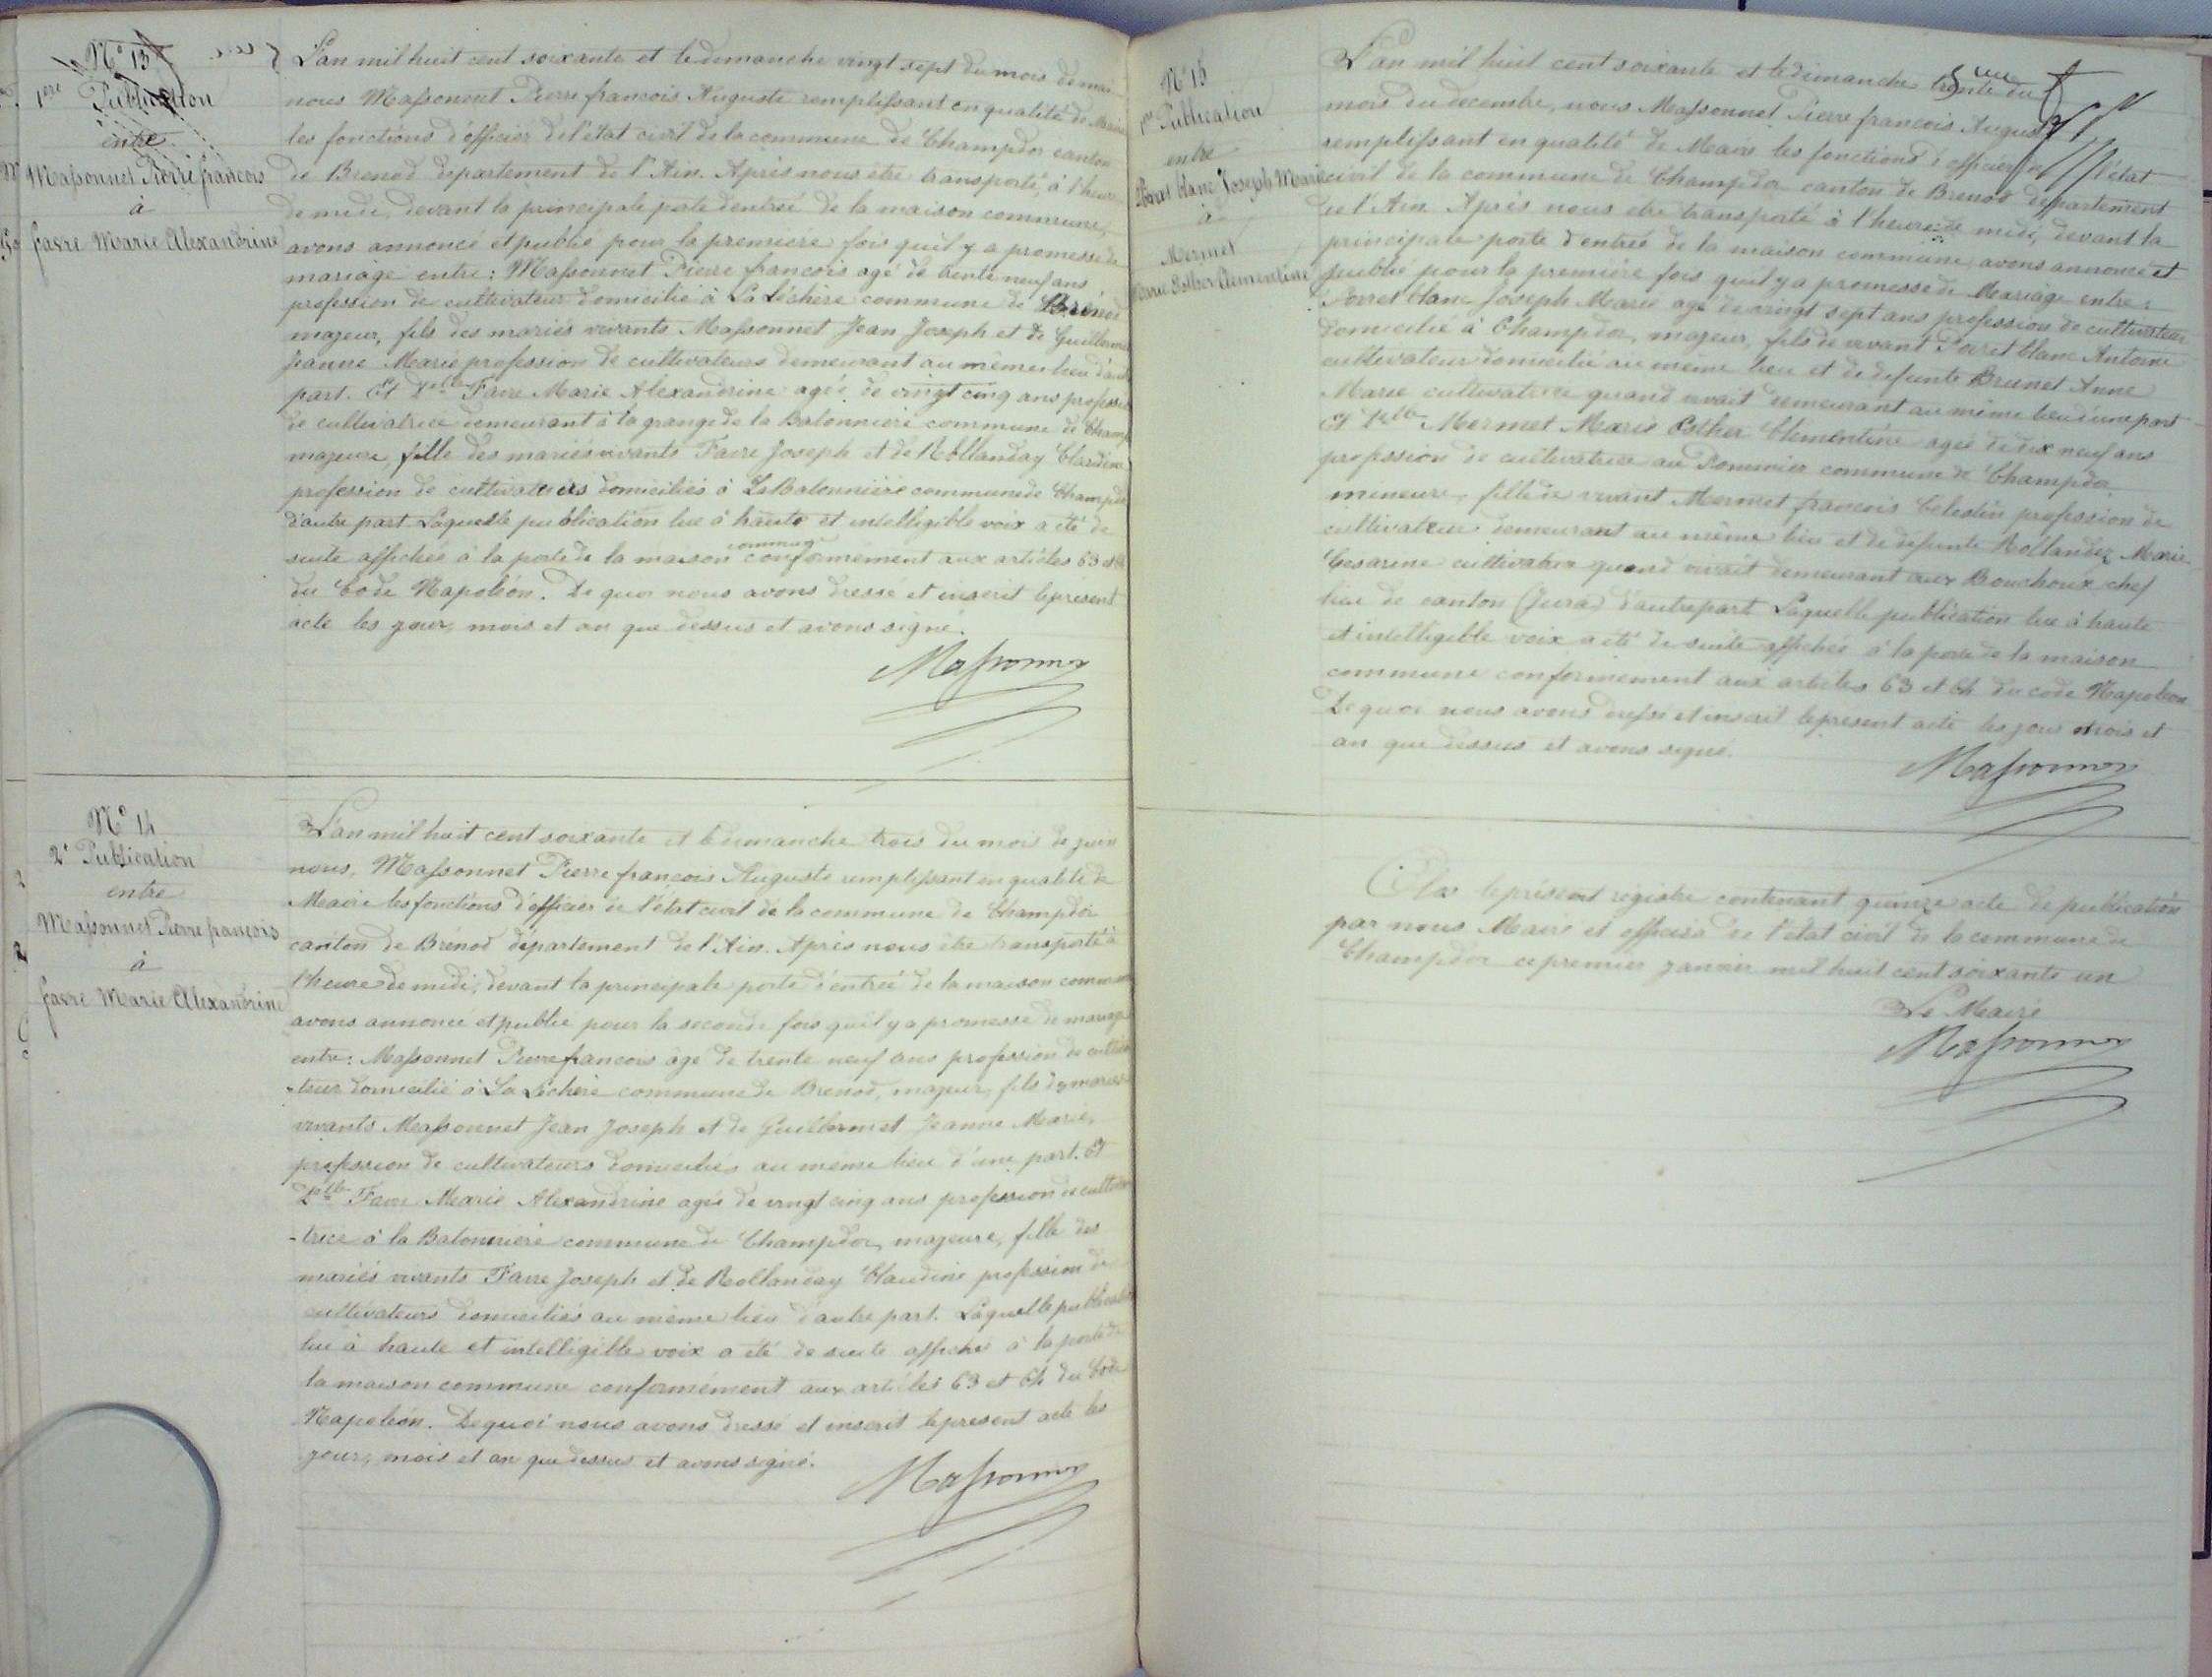 N° 13
1ère Publication
entre
Massonnet Pierre françois
à
favre Marie Alexandrine
L'an mil huit cent soixante et le dimanche vingt sept du mois de mai
nous Massonnet Pierre françois Auguste remplissant en qualité de Maire
les fonctions d'officier de l'état civil de la commune de Champdor canton
de Brenod departement de l'Ain. Après nous être transporté, à l'heure
de midi, devant la principale porte d'entrée de la maison commune,
avons annoncé et publié pour la première fois qu'il y a promesse de
mariage entre : Massonnet Pierre françois agé de trente neuf ans
profession de cultivateur domicilié à La Léchère commune de Brénod
majeur, fils des mariés vivants Massonnet Jean Joseph et de Guillermet
Jeanne Marie profession de cultivateurs demeurant au même lieu d'une
part. Et Delle Favre Marie Alexandrine agée de vingt cinq ans profession
de cultivatrice demeurant à la grange de la Batonnière commune de Champ
majeure, fille des mariés vivants Favre Joseph et de Rollanday Claudine
profession de cultivateurs domiciliés à La Batonnière commune de Champdor
d'autre part. Laquelle publication lue à haute et intelligible voix a été de
suite affichée à la porte de la maison commune conformément aux articles 63 et 64
du Code Napoléon. De quoi nous avons dressé et inscrit le présent
acte les jour, mois et an que dessus et avons signé.
Massonnet
N° 14
2e Publication
entre
Massonnet Pierre françois
à
favre Marie Alexandrine
L'an mil huit cent soixante et le dimanche trois du mois de juin
nous, Massonnet Pierre françois Auguste remplissant en qualité de
Maire les fonctions d'officier de l'état civil de la commune de Champdor
canton de Brénod département de l'Ain. Après nous être transporté à
l'heure de midi, devant la principale porte d'entrée de la maison commune
avons annoncé et publié pour la seconde fois qu'il y a promesse de mariage
entre : Massonnet Pierre françois âgé de trente neuf ans profession de cultiva
-teur domicilié à La Léchère commune de Brenod, majeur, fils des mariés
vivants Massonnet Jean Joseph et de Guillermet Jeanne Marie,
profession de cultivateurs domiciliés au même lieu d'une part. Et
Delle Favre Marie Alexandrine agée de vingt cinq ans profession de cultiva
-trice à la Batonnière commune de Champdor, majeure, fille des
mariés vivants Favre Joseph et de Rollanday Claudine profession de
cultivateurs domiciliés au même lieu d'autre part. Laquelle publication
lue à haute et intelligible voix a été de suite affichée à la porte de
la maison commune conformément aux articles 63 et 64 du Code
Napoléon. De quoi nous avons dressé et inscrit le present acte les
jour, mois et an que dessus et avons signé.
Massonnet
N° 15
1ère Publication
entre
Poret blanc Joseph Marie
à
Mermet
Marie Esther Clementine
L'an mil huit cent soixante et le dimanche trente du
mois du decembre, nous Massonnet Pierre françois Auguste
remplissant en qualité de Maire les fonctions d'officier de l'état
civil de la commune de Champdor canton de Brenod département
de l'Ain. Après nous etre transporté à l'heure de midi, devant la
principale porte d'entrée de la maison commune, avons annoncé et
publié pour la première fois qu'il y a promesse de Mariage entre :
Porret blanc Joseph Marie agé de vingt sept ans profession de cultivateur
domicilié à Champdor, majeur, fils de vivant Porret blanc Antoine
cultivateur domicilié au même lieu et de defunte Brunet Anne
Marie cultivatrice quand vivait demeurant au même lieu d'une part
Et Delle Mermet Marie Esther Clementine agée de dix neuf ans
profession de cultivatrice au Pommier commune de Champdor
mineure, fille de vivant Mermet françois Celestin profession de
cultivateur demeurant au même lieu et de défunte Rollandez Marie
Cesarine cultivatrice quand vivait demeurant aux Bouchoux chef
lieu de canton (Jura) d'autre part Laquelle publication lue à haute
et intelligible voix a été de suite affichée à la porte de la maison
commune conformement aux articles 63 et 64 du code Napoléon
De quoi nous avons dressé et inscrit le present acte les jour mois et
an que dessus et avons signé.
Massonnet
Clos le présent régistre contenant quinze acte de publication
par nous Maire et officier de l'état civil de la commune de
Champdor ce premier janvier mil huit cent soixante un
Le Maire
Massonnet